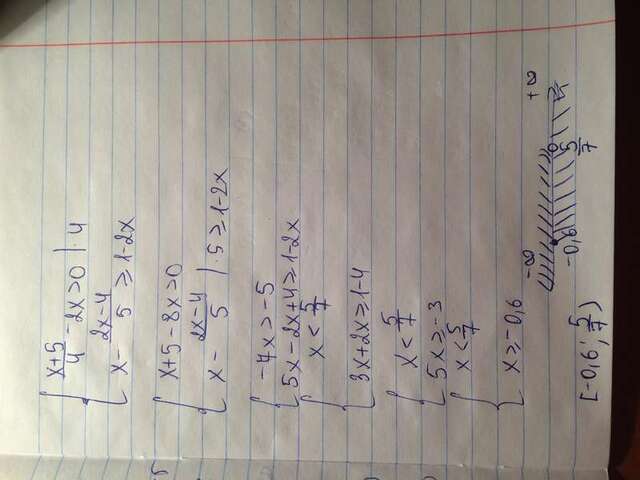 x+5/4 - 2x > 0 | · 4
x - 2x-4/5 ≥ 1-2x
x+5 - 8x > 0
x - 2x-4/5 | · 5 ≥ 1-2x
-7x > -5
5x - 2x + 4 ≥ 1-2x
x < 5/7
3x + 2x ≥ 1-4
x < 5/7
5x ≥ -3
x < 5/7
x ≥ -0,6
-∞ +∞
-0,6 5/7
[-0,6; 5/7)